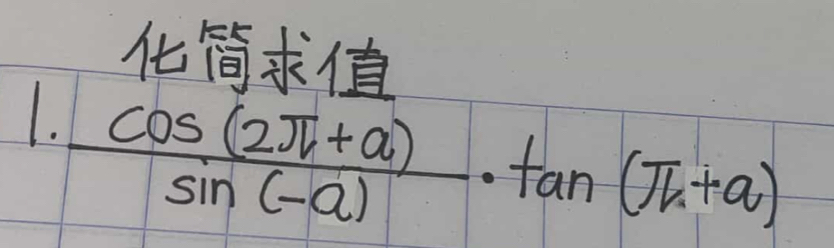 化简求值
1. cos(2π+a)/sin(-a) · tan(π+a)